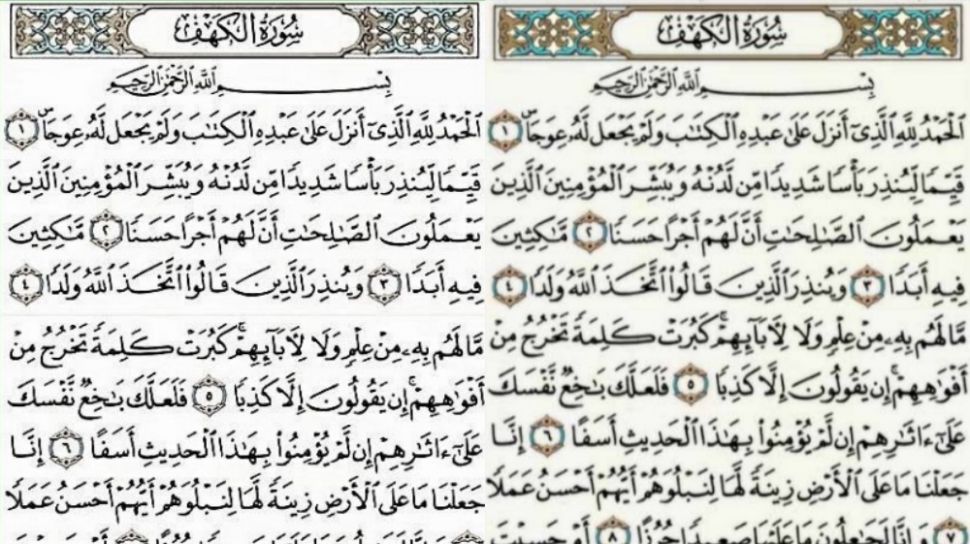 سُورَةُ الكَهْفِ
بِسْمِ اللَّهِ الرَّحْمَٰنِ الرَّحِيمِ
ٱلْحَمْدُ لِلَّهِ ٱلَّذِىٓ أَنزَلَ عَلَىٰ عَبْدِهِ ٱلْكِتَٰبَ وَلَمْ يَجْعَل لَّهُۥ عِوَجَاۜ ١
قَيِّمًا لِّيُنذِرَ بَأْسًا شَدِيدًا مِّن لَّدُنْهُ وَيُبَشِّرَ ٱلْمُؤْمِنِينَ ٱلَّذِينَ
يَعْمَلُونَ ٱلصَّٰلِحَٰتِ أَنَّ لَهُمْ أَجْرًا حَسَنًا ٢ مَّٰكِثِينَ
فِيهِ أَبَدًا ٣ وَيُنذِرَ ٱلَّذِينَ قَالُوا۟ ٱتَّخَذَ ٱللَّهُ وَلَدًا ٤
مَّا لَهُم بِهِۦ مِنْ عِلْمٍ وَلَا لِأَبَآئِهِمْ ۚ كَبُرَتْ كَلِمَةً تَخْرُجُ مِنْ
أَفْوَٰهِهِمْ ۚ إِن يَقُولُونَ إِلَّا كَذِبًا ٥ فَلَعَلَّكَ بَٰخِعٌ نَّفْسَكَ
عَلَىٰٓ ءَاثَٰرِهِمْ إِن لَّمْ يُؤْمِنُوا۟ بِهَٰذَا ٱلْحَدِيثِ أَسَفًا ٦ إِنَّا
جَعَلْنَا مَا عَلَى ٱلْأَرْضِ زِينَةً لَّهَا لِنَبْلُوَهُمْ أَيُّهُمْ أَحْسَنُ عَمَلًا
٧ وَإِنَّا لَجَٰعِلُونَ مَا عَلَيْهَا صَعِيدًا جُرُزًا ٨ أَمْ حَسِبْتَ
سُورَةُ الكَهْفِ
بِسْمِ اللَّهِ الرَّحْمَٰنِ الرَّحِيمِ
ٱلْحَمْدُ لِلَّهِ ٱلَّذِىٓ أَنزَلَ عَلَىٰ عَبْدِهِ ٱلْكِتَٰبَ وَلَمْ يَجْعَل لَّهُۥ عِوَجَاۜ ١
قَيِّمًا لِّيُنذِرَ بَأْسًا شَدِيدًا مِّن لَّدُنْهُ وَيُبَشِّرَ ٱلْمُؤْمِنِينَ ٱلَّذِينَ
يَعْمَلُونَ ٱلصَّٰلِحَٰتِ أَنَّ لَهُمْ أَجْرًا حَسَنًا ٢ مَّٰكِثِينَ
فِيهِ أَبَدًا ٣ وَيُنذِرَ ٱلَّذِينَ قَالُوا۟ ٱتَّخَذَ ٱللَّهُ وَلَدًا ٤
مَّا لَهُم بِهِۦ مِنْ عِلْمٍ وَلَا لِأَبَآئِهِمْ ۚ كَبُرَتْ كَلِمَةً تَخْرُجُ مِنْ
أَفْوَٰهِهِمْ ۚ إِن يَقُولُونَ إِلَّا كَذِبًا ٥ فَلَعَلَّكَ بَٰخِعٌ نَّفْسَكَ
عَلَىٰٓ ءَاثَٰرِهِمْ إِن لَّمْ يُؤْمِنُوا۟ بِهَٰذَا ٱلْحَدِيثِ أَسَفًا ٦ إِنَّا
جَعَلْنَا مَا عَلَى ٱلْأَرْضِ زِينَةً لَّهَا لِنَبْلُوَهُمْ أَيُّهُمْ أَحْسَنُ عَمَلًا